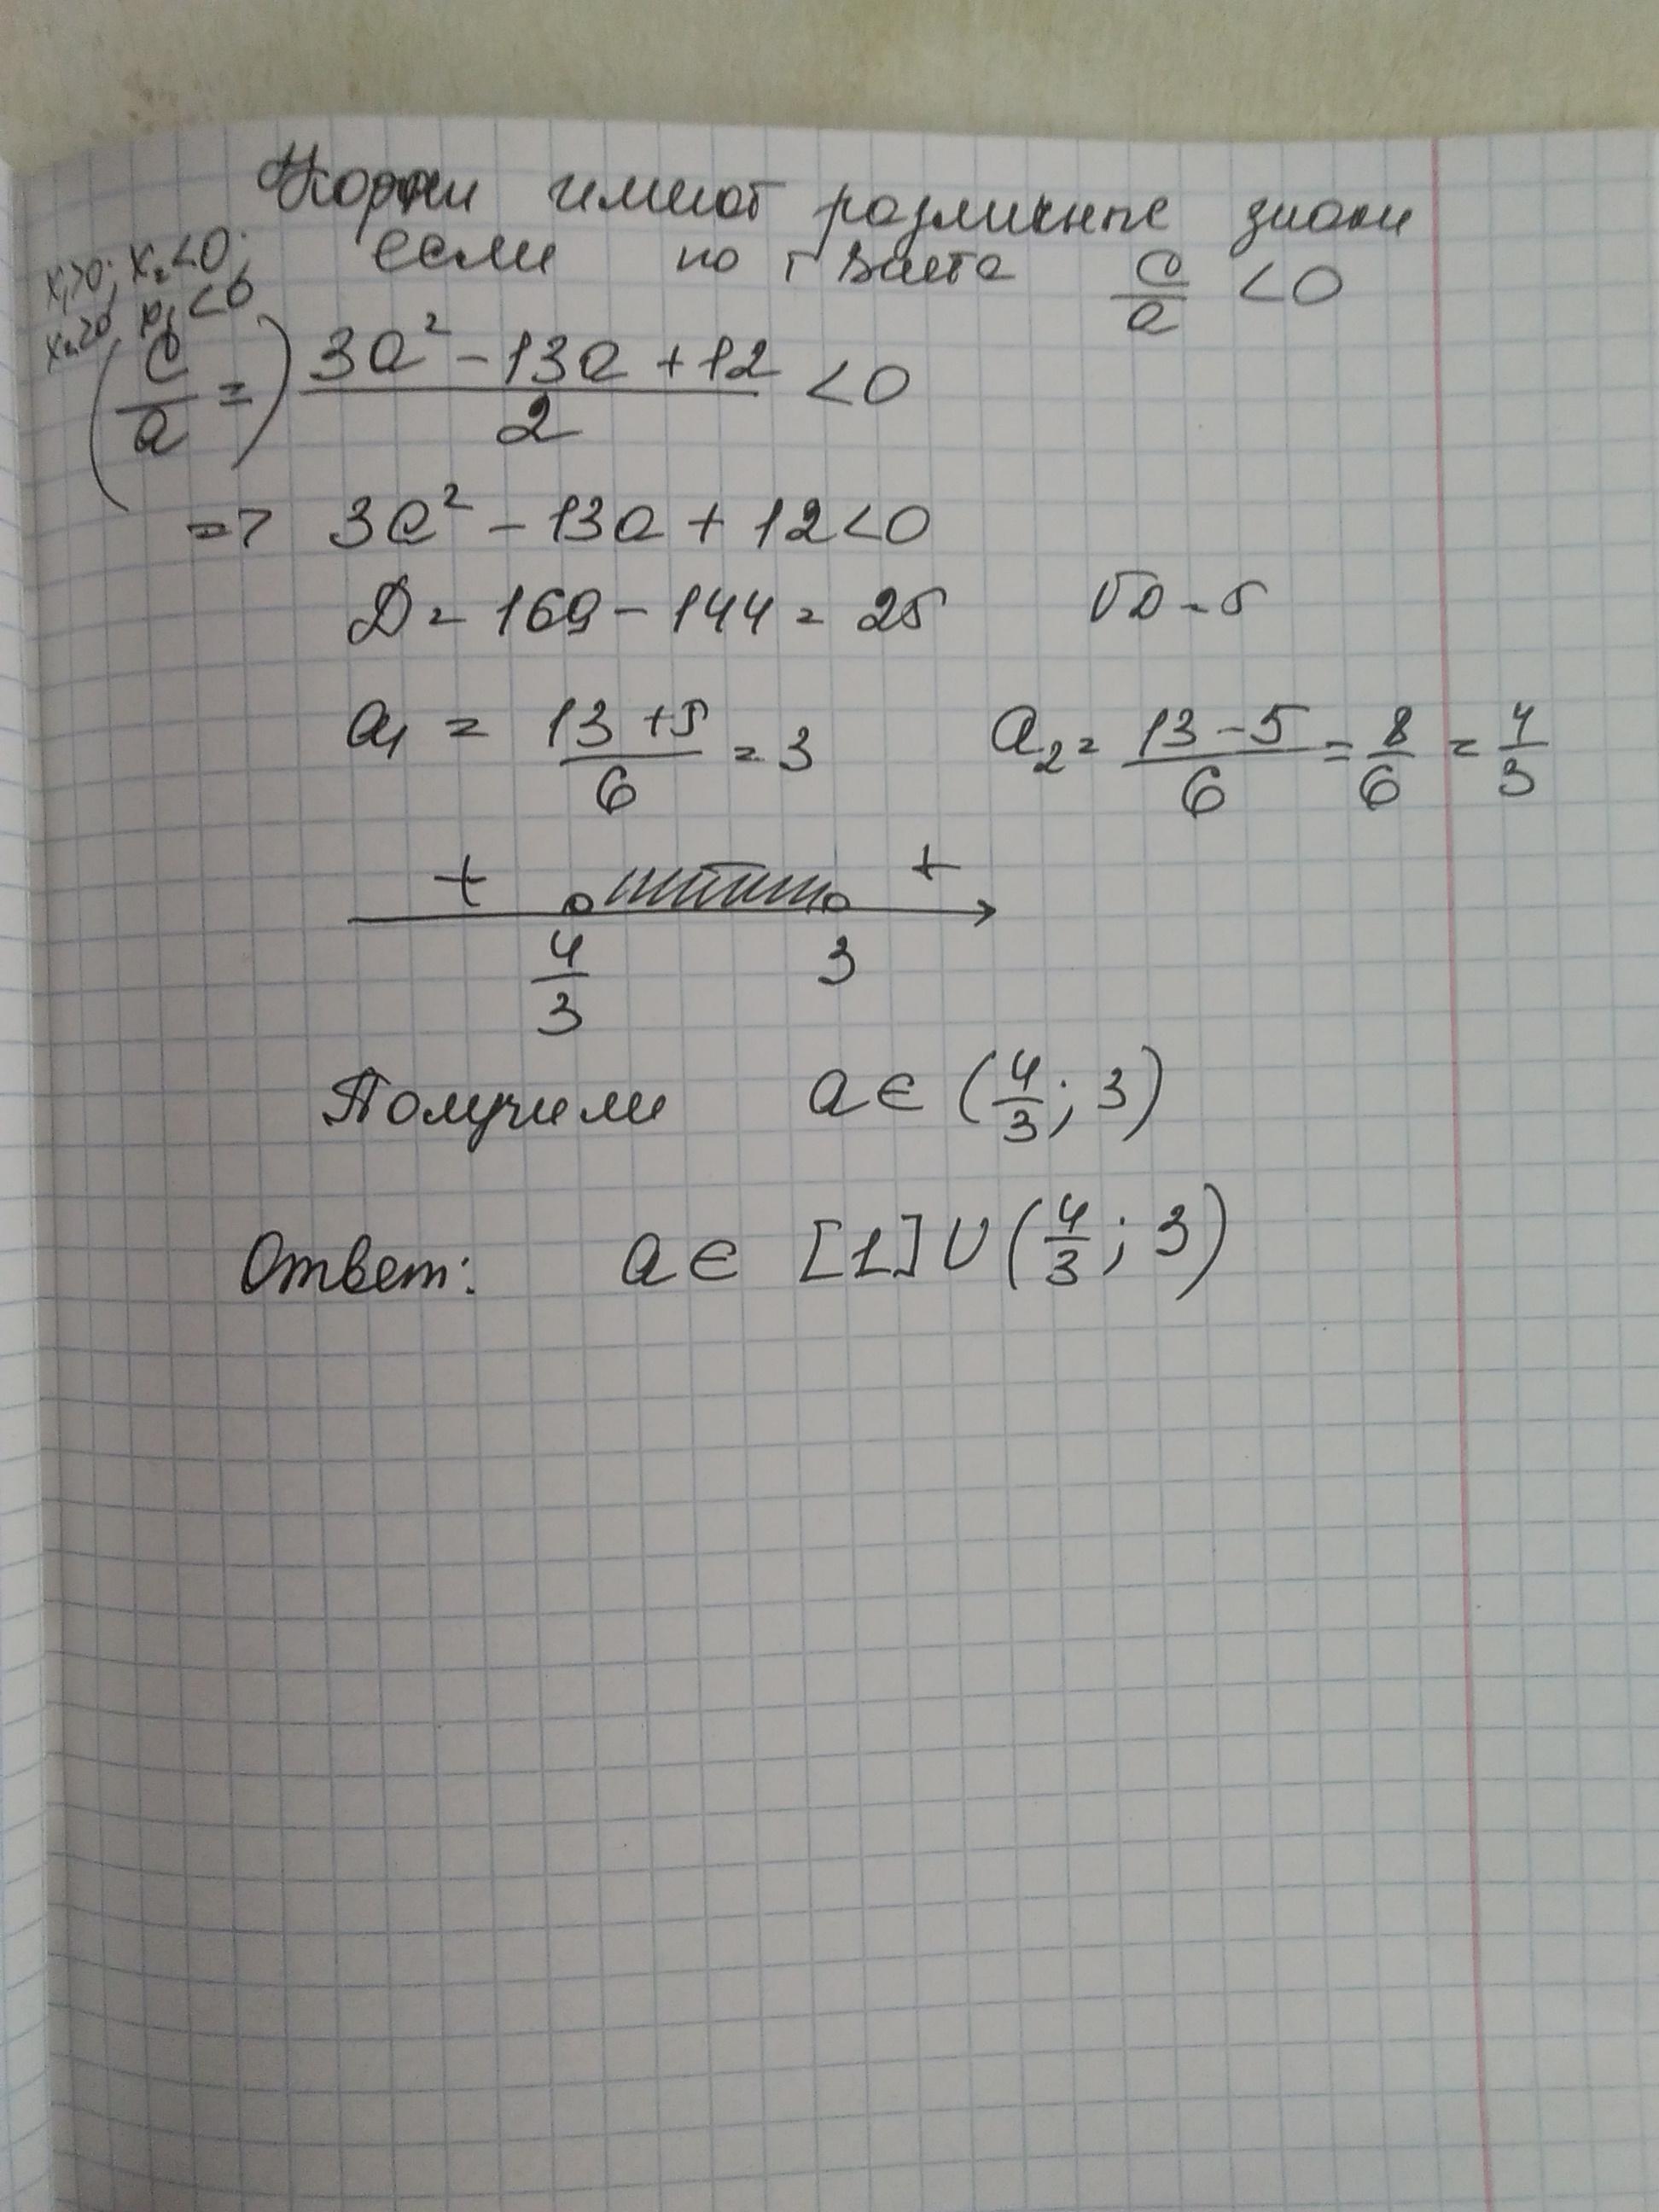 Корни имеют различные знаки
x₁>0; x₂<0;
если по т Виета c/a <0
x₂>0, x₁<0
(c/a =) (3a² - 13a + 12)/2 <0
=> 3a² - 13a + 12<0
D = 169 - 144 = 25 √D = 5
a₁ = (13 + 5)/6 = 3 a₂ = (13 - 5)/6 = 8/6 = 4/3
+ +
4/3 3
Получили a ∈ (4/3; 3)
Ответ: a ∈ [1] ∪ (4/3; 3)